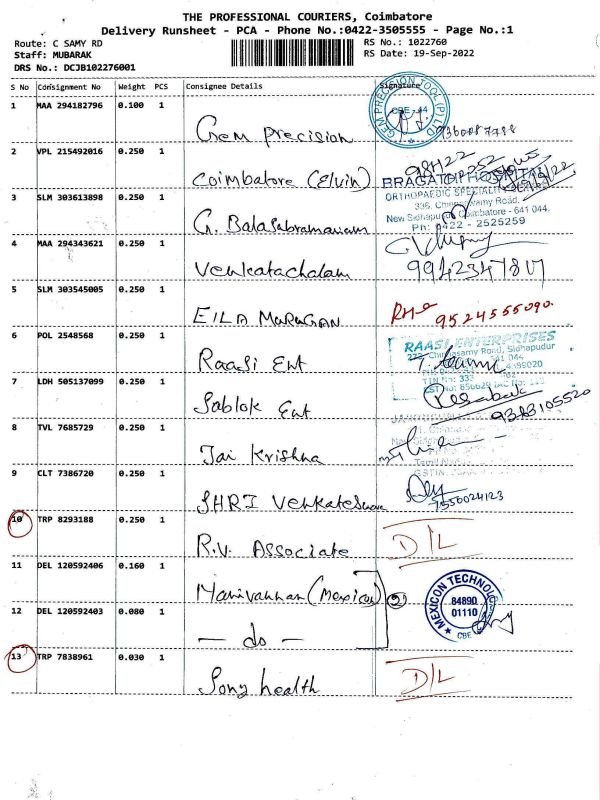 THE PROFESSIONAL COURIERS, Coimbatore
Delivery Runsheet - PCA - Phone No.:0422-3505555 - Page No.:1
Route: C SAMY RD
RS No.: 1022760
Staff: MUBARAK
RS Date: 19-Sep-2022
DRS No.: DCJB102276001
S No Consignment No Weight PCS Consignee Details Signature
1 MAA 294182796 0.100 1
Gem Precision
GEM PRECISION TOOL (P) LTD
CBE - 44
2 VPL 215492016 0.250 1
Coimbatore (Elvin)
BRAGATDIP HOSPITAL
ORTHOPAEDIC SPECIALITY
336, Chinnasamy Road,
New Sidhapudur, Coimbatore - 641 044.
Ph: 0422 - 2525259
3 SLM 303613898 0.250 1
G. Balasubramaniam
4 MAA 294343621 0.250 1
Venkatachalam
5 SLM 303545005 0.250 1
EILA MURUGAN
9524555090.
6 POL 2548568 0.250 1
Raasi Ent
RAASI ENTERPRISES
Chinnasamy Road, Sidhapudur
641 044
7 LDH 505137099 0.250 1
Sablok Ent
9383105520
8 TVL 7685729 0.250 1
Jai Krishna
9 CLT 7386720 0.250 1
SHRI Venkateswara
7550024123
10 TRP 8293188 0.250 1
R.V. Associate
D/L
11 DEL 120592406 0.160 1
Manivannan (Mexicon)
2
MEXICON TECHNOLO
84890
01110
CBE
12 DEL 120592403 0.080 1
— do —
13 TRP 7838961 0.030 1
Sony health
D/L